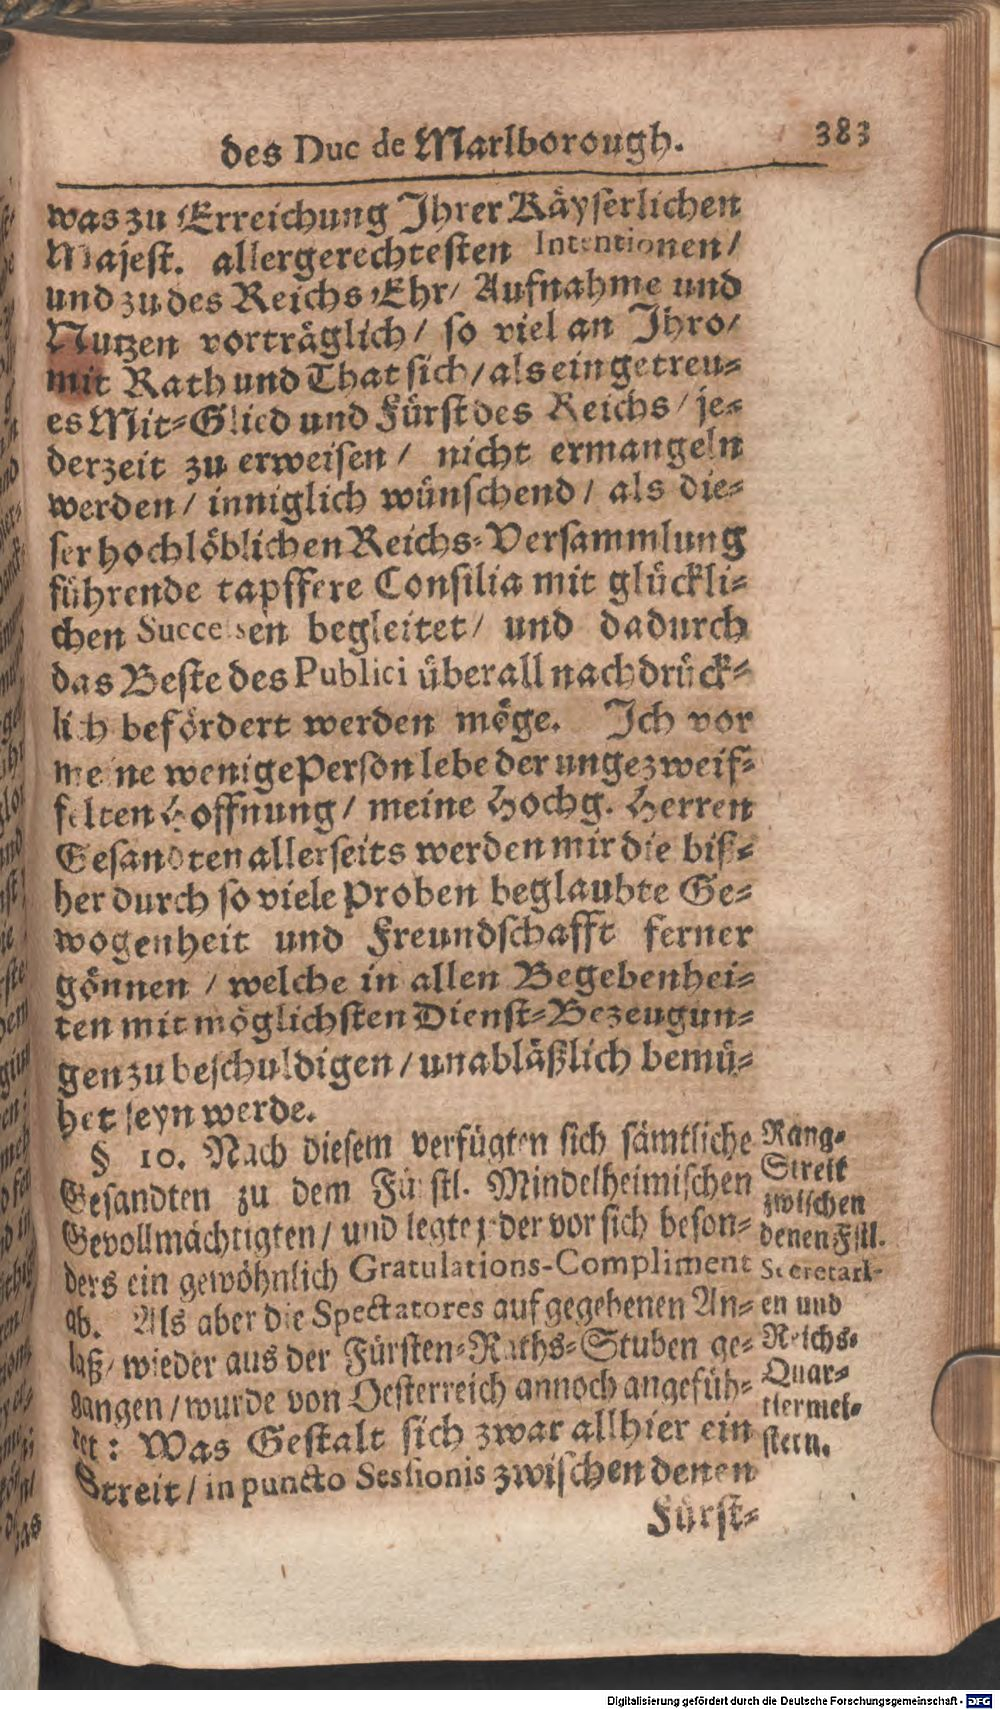 des Duc de Marlborough. 383
was zu Erreichung Ihrer Käyserlichen
Majest. allergerechtesten Intentionen/
und zu des Reichs Ehr/ Aufnahme und
Nutzen vorträglich/ so viel an Ihro/
mit Rath und That sich/ als ein getreu-
es Mit-Glied und Fürst des Reichs/ je-
derzeit zu erweisen/ nicht ermangeln
werden/ inniglich wünschend/ als die-
ser hochlöblichen Reichs-Versammlung
führende tapffere Consilia mit glückli-
chen Successen begleitet/ und dadurch
das Beste des Publici überall nachdrück-
lich befördert werden möge. Ich vor
meine wenige Person lebe der ungezweif-
felten Hoffnung/ meine Hochg. Herren
Gesandten allerseits werden mir die biß-
her durch so viele Proben beglaubte Ge-
wogenheit und Freundschafft ferner
gönnen/ welche in allen Begebenhei-
ten mit möglichsten Dienst-Bezeugun-
gen zu beschuldigen/ unabläßlich bemü-
het seyn werde.
§ 10. Nach diesem verfügten sich sämtliche
Gesandten zu dem Fürstl. Mindelheimischen
Gevollmächtigten/ und legte jeder vor sich beson-
ders ein gewöhnlich Gratulations-Compliment
ab. Als aber die Spectatores auf gegebenen An-
laß/ wieder aus der Fürsten-Raths-Stuben ge-
gangen/ wurde von Oesterreich annoch angefüh-
ret: Was Gestalt sich zwar allhier ein
Streit/ in puncto Sessionis zwischen denen
Fürst-
Rang-
Streit
zwischen
denen Fstl.
Secretari-
en und
Reichs-
Quar-
tiermei-
stern.
Digitalisierung gefördert durch die Deutsche Forschungsgemeinschaft - DFG